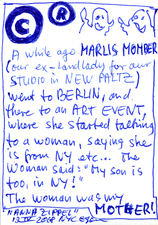 C R
A while ago MARLIS MOMBER
(our ex-landlady for our
STUDIO in NEW PALTZ)
went to BERLIN, and
there to an ART EVENT,
where she started talking
to a woman, saying she
is from NY etc... The
Woman said: "My son is
too, in NY!"
The woman was my
MOTHER!
"ANNA ZIPPEL"
2008 NYC